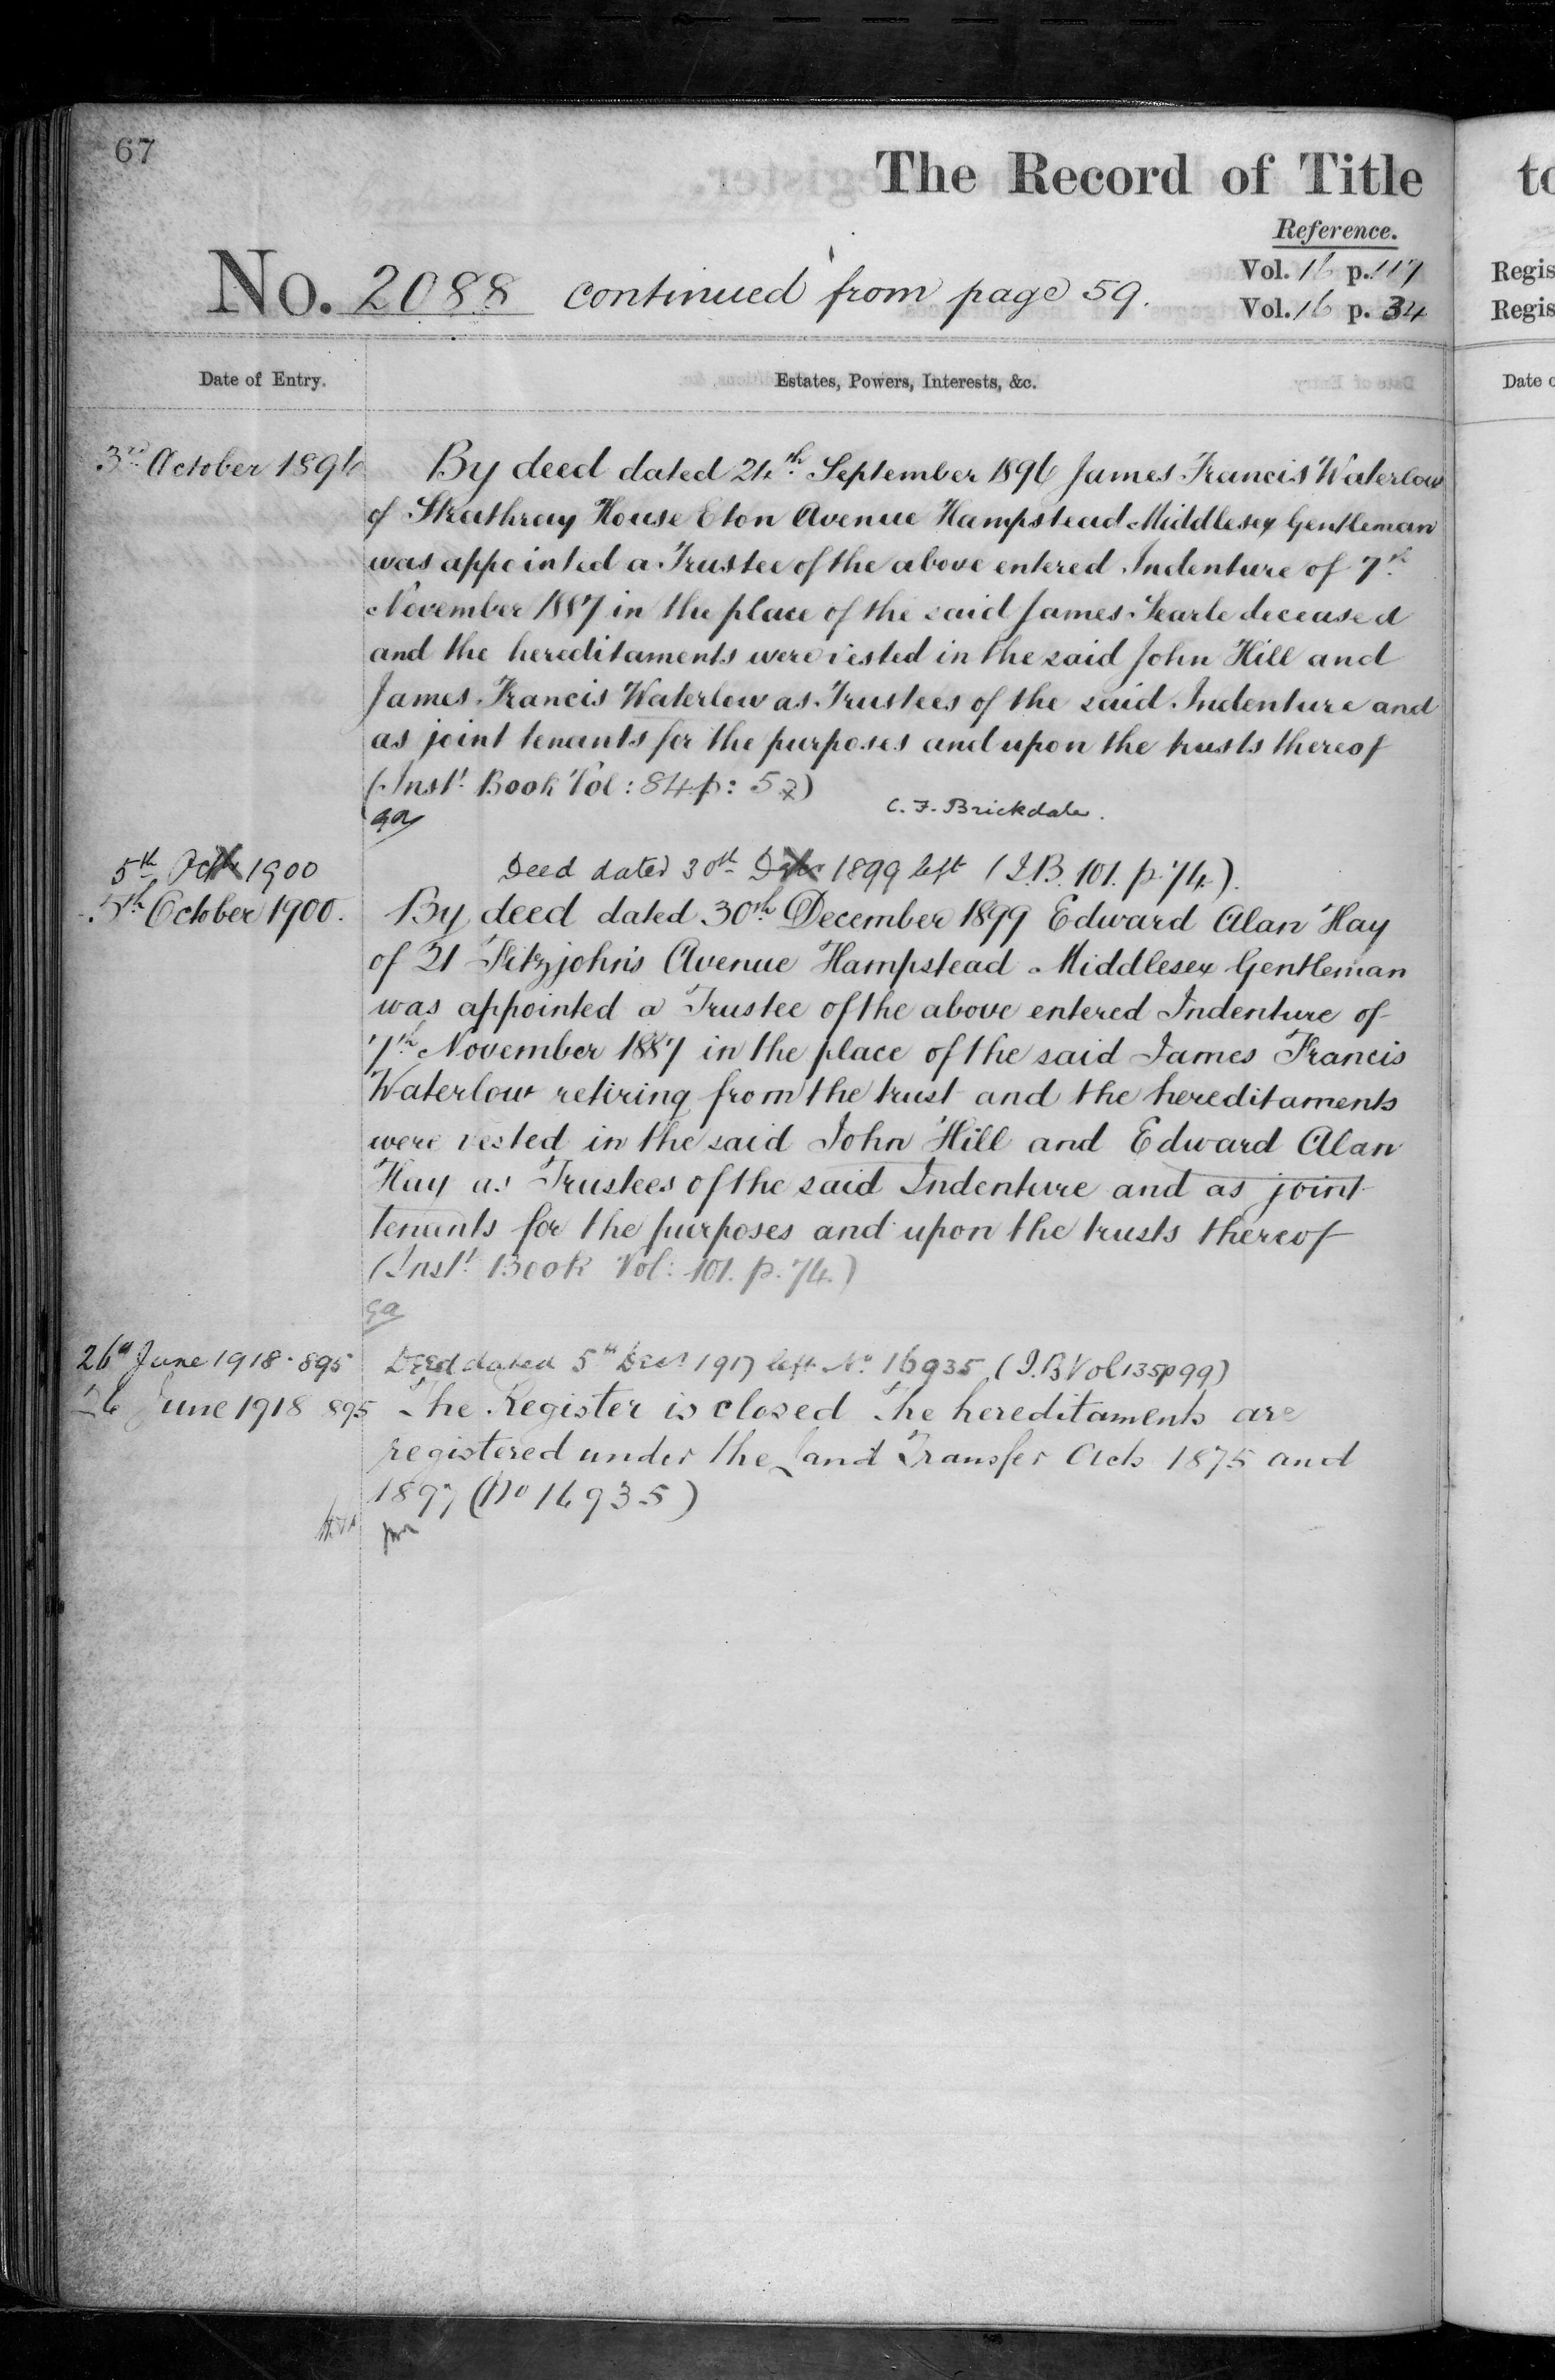 67
The Record of Title
Reference.
Vol. 16 p. 117
No. 2088 continued from page 59.
Vol. 16 p. 34
Date of Entry.
Estates, Powers, Interests, &c.
3rd October 1896
By deed dated 24th September 1896 James Francis Waterlow
of Strathray House Eton Avenue Hampstead Middlesex Gentleman
was appointed a Trustee of the above entered Indenture of 7th
November 1887 in the place of the said James Searle deceased
and the hereditaments were vested in the said John Hill and
James Francis Waterlow as Trustees of the said Indenture and
as joint tenants for the purposes and upon the trusts thereof
(Inst: Book Vol: 84 p: 52)
C. F. Brickdale.
ga
5th Oct 1900
Deed dated 30th 1899 left (I.B. 101. p. 74).
5th October 1900.
By deed dated 30th December 1899 Edward Alan Hay
of 21 Fitzjohn's Avenue Hampstead Middlesex Gentleman
was appointed a Trustee of the above entered Indenture of
7th November 1887 in the place of the said James Francis
Waterlow retiring from the trust and the hereditaments
were vested in the said John Hill and Edward Alan
Hay as Trustees of the said Indenture and as joint
tenants for the purposes and upon the trusts thereof
(Inst: Book Vol: 101. p. 74.)
ga
26th June 1918 - 895
Deed dated 5th Decr 1917 left No. 16935 (I.B Vol 135 p 99)
26 June 1918 895
The Register is closed The hereditaments are
registered under the Land Transfer Acts 1875 and
1897 (No 16935)
to
Regis
Regis
Date o